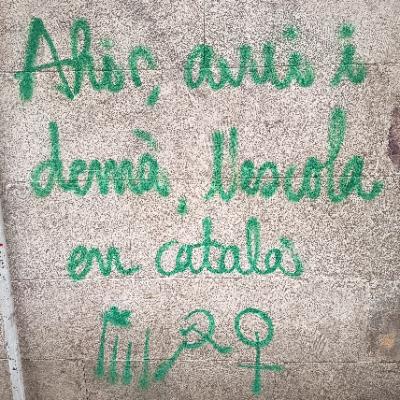 Ahir, avui i
demà, l'escola
en català